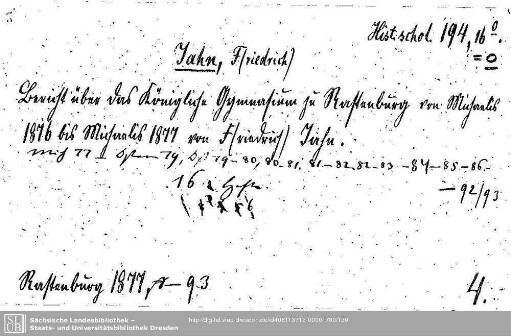 Hist. schol. 194, 16 0.
= 0
Jahn, F(riedrich)
Bericht über das Königliche Gymnasium zu Rastenburg von Michaelis
1876 bis Michaelis 1877 von F(riedrich) Jahn.
Mich 77 - Ostern 79, Ost 79-80, 80-81, 81-82, 82-83 -84-85-86-
- 92/93
16 Hefte
Rastenburg 1877, - 93
4.
Sächsische Landesbibliothek –
Staats- und Universitätsbibliothek Dresden